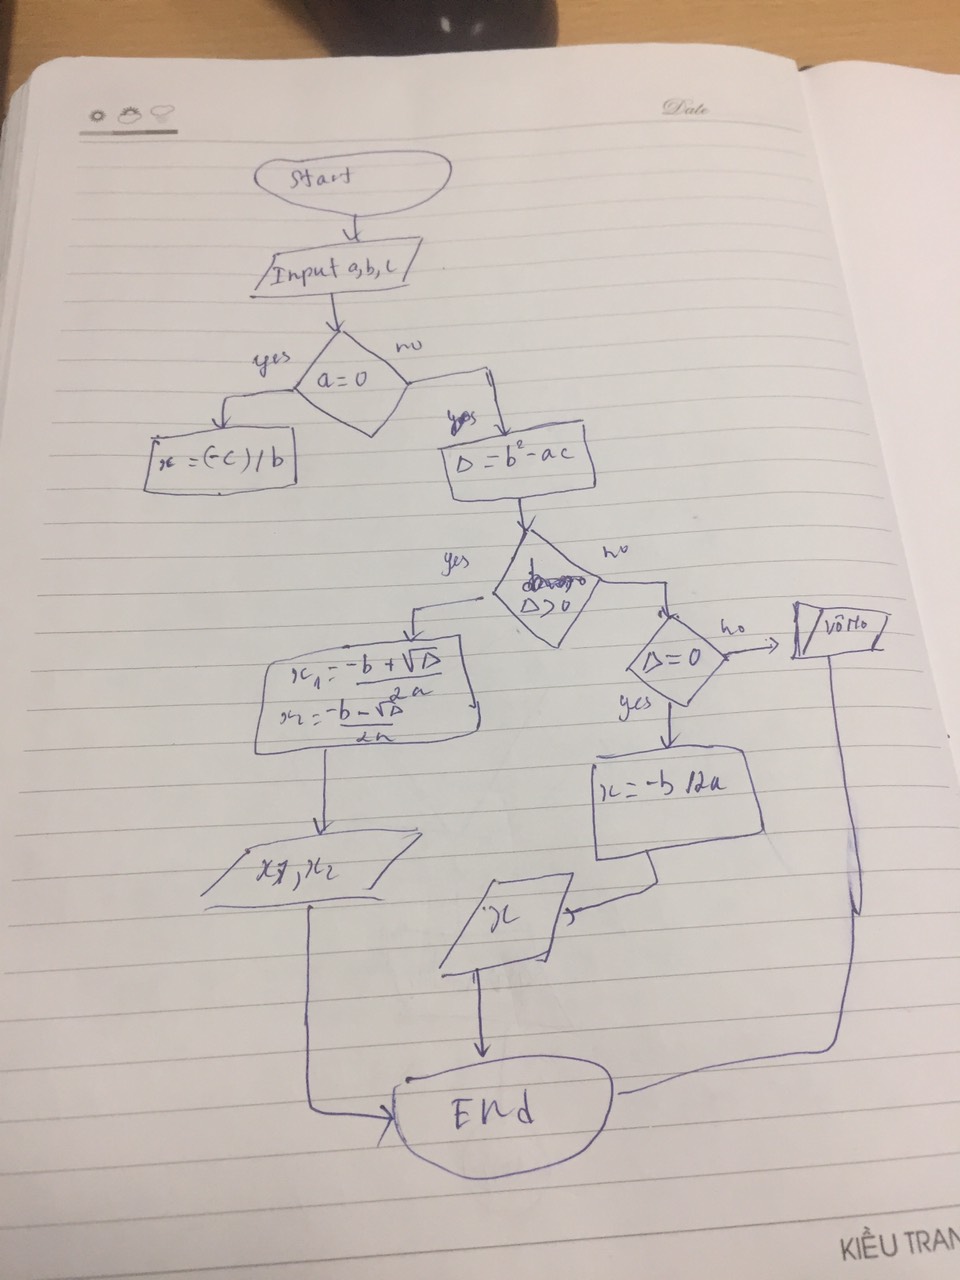 Date
Start
Input a,b,c
yes
no
a = 0
yes
x = (-c) / b
Δ = b² - ac
yes
no
Δ > 0
x₁ = -b + √Δ / 2a
x₂ = -b - √Δ / 2a
Δ = 0
no
yes
x = -b / 2a
x₁, x₂
x
End
KIỀU TRAN